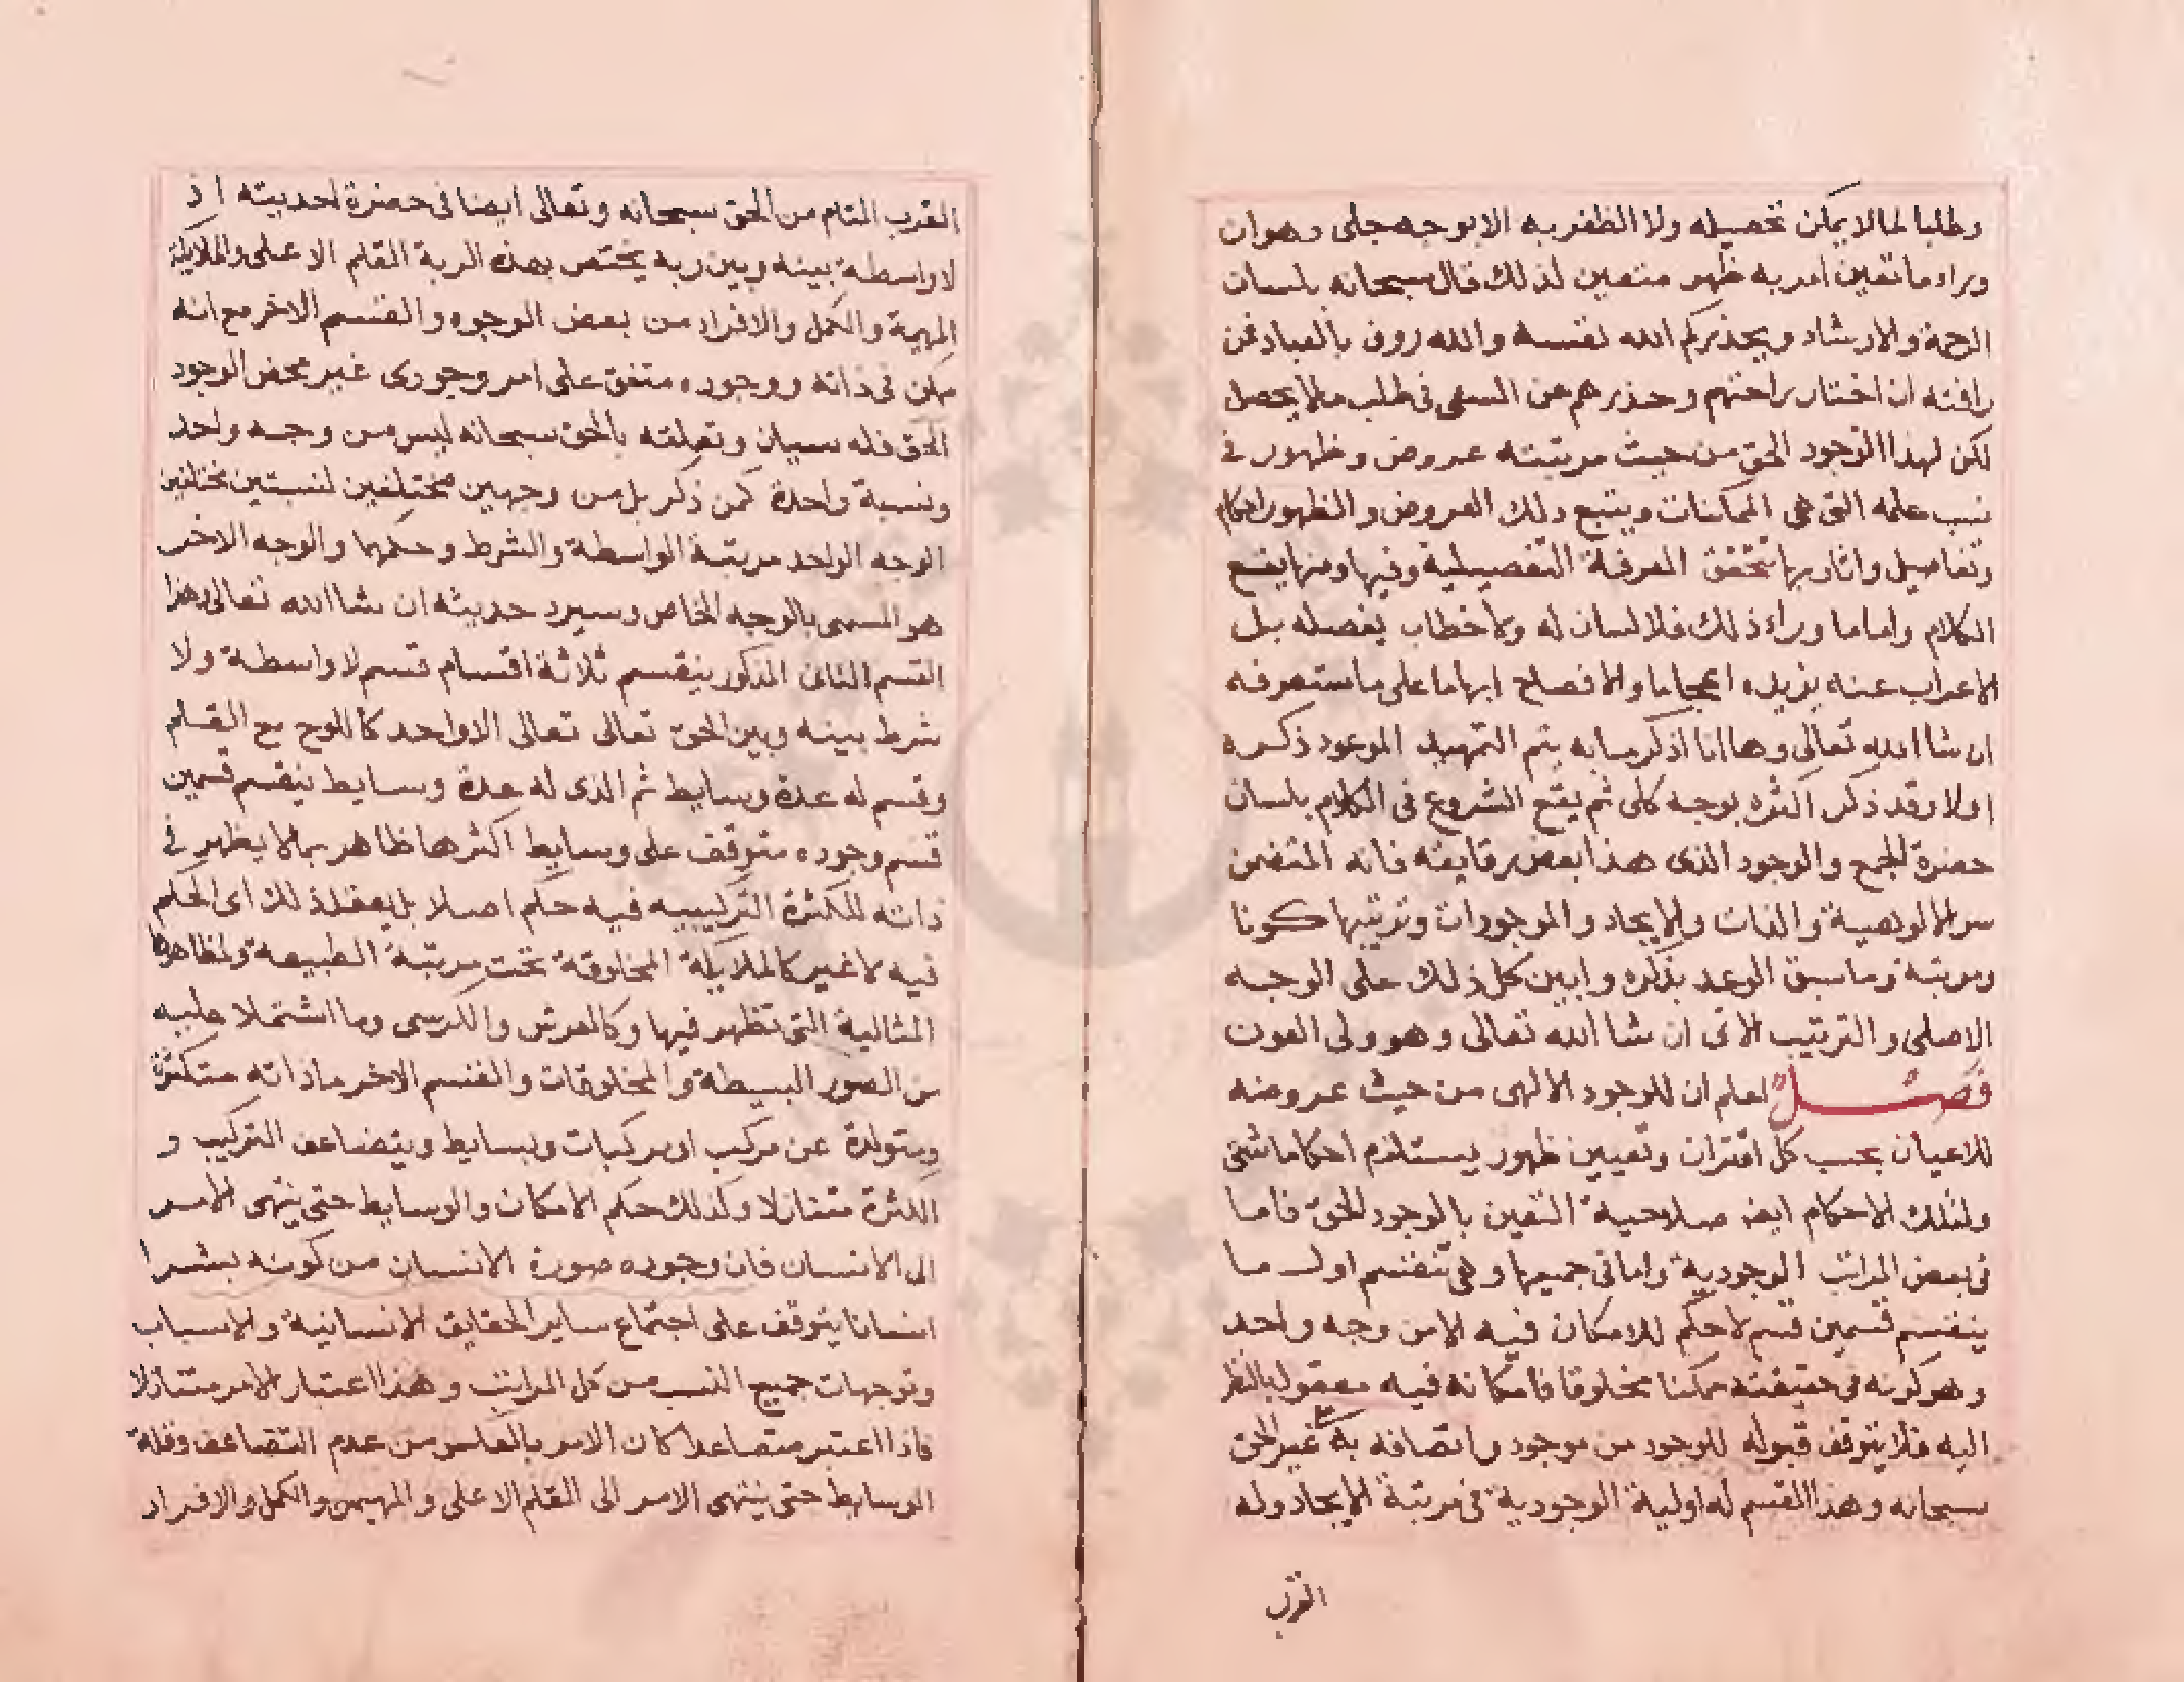 وطلبا لما لا يمكن تحصيله ولا الظفر به الا بوجه جملى وهو ان
وراء ما تعين امر به ظهر متعين لذلك قال سبحانه بلسان
الرحمة والارشاد ويحذركم الله نفسه والله روف بالعباد فمن
رافته ان اختار راحتهم وحذرهم من السعى فى طلب ما لا يحصل
لكن لهذا الوجود الحق من حيث مرتبته عروض وظهور فى
نسب علمه التى هى الممكنات ويتبع ذلك العروض والظهور احكام
وتفاصيل واثار بها تتحقق المعرفة التفصيلية وفيها ومنها يقع
الكلام واما ما وراء ذلك فلا لسان له ولا خطاب يفصله بل
الاعراب عنه يزيده اعجاما والافصاح ابهاما على ما ستعرفه
ان شا الله تعالى وها انا اذكر ما به يتم التمهيد الموعود ذكره
اولا وقد ذكر اكثره بوجه كلى ثم يقع الشروع فى الكلام بلسان
حضرة الجمع والوجود الذى هذا بعض رقايقه فانه المتضمن
سر الالوهية والذات والايجاد والموجودات وترتيبها كونا
ومرتبة وما سبق الوعد بذكره وابين كل ذلك على الوجه
الاصلى والترتيب الاتى ان شا الله تعالى وهو ولى العون
فصل اعلم ان للوجود الالهى من حيث عروضه
للاعيان بحسب كل اقتران وتعيين ظهور يستلزم احكاما شتى
ولتلك الاحكام ايضا صلاحية التعين بالوجود الحق فاما
فى بعض المراتب الوجودية واما فى جميعها وهى تنقسم اول ما
ينقسم قسمين قسم لا حكم للامكان فيه الا من وجه واحد
وهو كونه فى حقيقته ممكنا مخلوقا فامكانه فيه معقول بالنظر
اليه فلا يتوقف قبوله للوجود من موجود واتصافه به غير الحق
سبحانه وهذا القسم له اولية الوجودية فى مرتبة الايجاد وله
القرب
القرب التام من الحق سبحانه وتعالى ايضا فى حضرة احديته اذ
لا واسطة بينه وبين ربه يختص بهذه الربة القلم الاعلى والملايكة
المهيمة والكمل والافراد من بعض الوجوه والقسم الاخر مع انه
ممكن فى ذاته ووجوده متفق على امر وجودى غير محض الوجود
الحق فله سيان وتعلقه بالحق سبحانه ليس من وجه واحد
ونسبة واحدة كمن ذكر بل من وجهين مختلفين لنسبتين مختلفتين
الوجه الواحد مرتبة الواسطة والشرط وحكمها والوجه الاخر
هو المسمى بالوجه الخاص وسيرد حديثه ان شا الله تعالى وهذا
القسم الثانى المذكور ينقسم ثلاثة اقسام قسم لا واسطة ولا
شرط بينه وبين الحق تعالى تعالى الا واحد كاللوح مع القلم
وقسم له عدة وسايط ثم الذى له عدة وسايط ينقسم قسمين
قسم وجوده متوقف على وسايط اكثرها ظاهر بما لا يظهر فى
ذاته للكثرة التركيبيه فيه حكم اصلا بل يعقل ذلك اى الحكم
فيه لا غير كالملايكة المخلوقة تحت مرتبة الطبيعة ولمظاهرها
المثالية التى تظهر فيها وكالعرش والكرسى وما اشتملا عليه
من الصور البسيطة والمخلوقات والقسم الاخر ما ذاته متكثرة
ومتولدة عن مركب او مركبات وبسايط ويتضاعف التركيب و
الكثرة متنازلا وكذلك حكم الامكان والوسايط حتى ينتهى الامر
الى الانسان فان وجوده صورة الانسان من كونه بشرا
انسانا يتوقف على اجتماع ساير الحقايق الانسانية والاسباب
وتوجهات جميع النسب من كل المراتب وهذا اعتبار الامر متنازلا
فاذا اعتبر متصاعدا كان الامر بالعكس من عدم التضاعف وقلة
الوسايط حتى ينتهى الامر الى القلم الاعلى والمهيمن والكمل والافراد